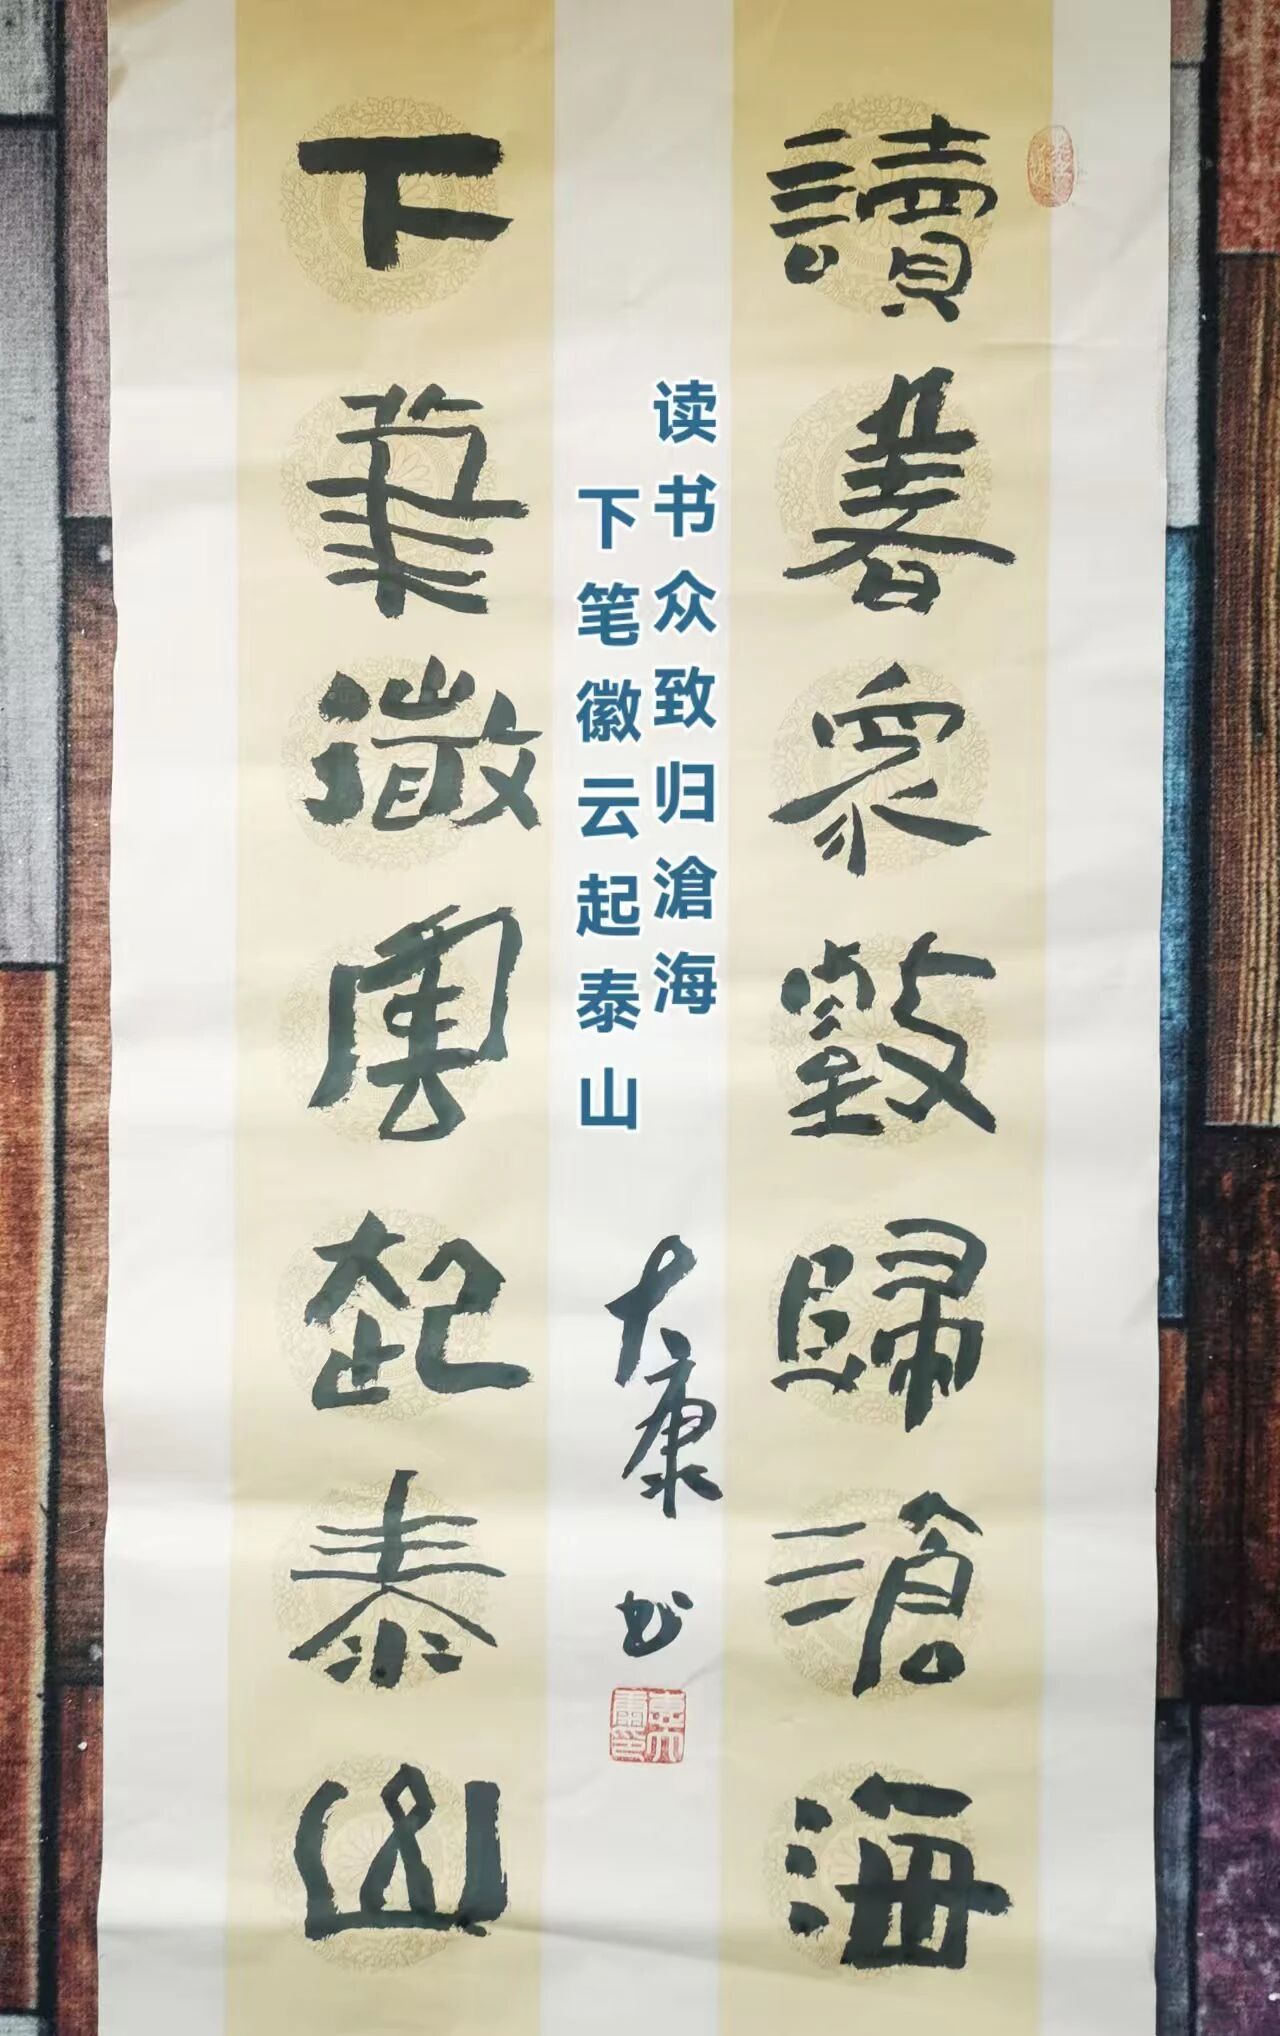 讀書眾致歸滄海
下筆徽雲起泰山
读书众致归滄海
下笔徽云起泰山
大康书